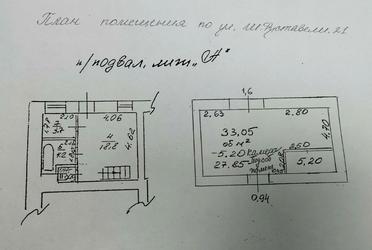 План помещения по ул. Ш. Руставели. 21
п/подвал, лит „А"
2.10
4.06
4
18.8
4.62
3.7
1,6
2.63
2.80
33,05
об м²
-5.20 камера
27.85
2.50
5,20
4,70
0,94